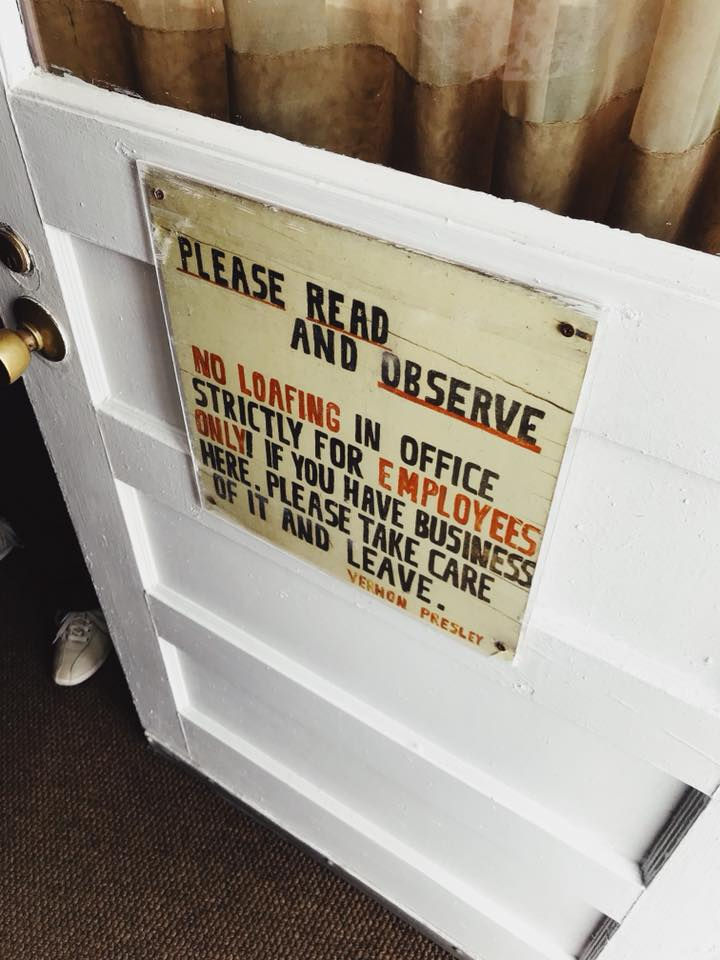 PLEASE READ
AND OBSERVE
NO LOAFING IN OFFICE
STRICTLY FOR EMPLOYEES
ONLY! IF YOU HAVE BUSINESS
HERE. PLEASE TAKE CARE
OF IT AND LEAVE.
VERNON PRESLEY